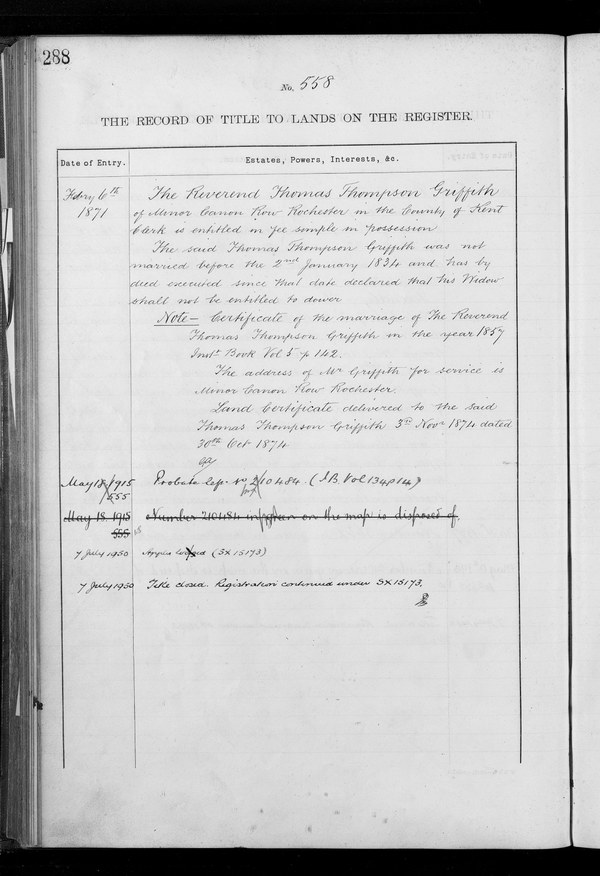 288
No. 558
THE RECORD OF TITLE TO LANDS ON THE REGISTER.
Date of Entry.
Estates, Powers, Interests, &c.
Febry 6th
1871
The Reverend Thomas Thompson Griffith
of Minor Canon Row Rochester in the County of Kent
Clerk is entitled in fee simple in possession
The said Thomas Thompson Griffith was not
married before the 2nd January 1834 and has by
deed executed since that date declared that his Widow
shall not be entitled to dower
Note - Certificate of the marriage of The Reverend
Thomas Thompson Griffith in the year 1857
Inst. Book Vol 5 p 142.
The address of Mr Griffith for service is
Minor Canon Row Rochester.
Land Certificate delivered to the said
Thomas Thompson Griffith 3rd Novr 1874 dated
30th Oct 1874
May 18 1915
555
Probate 210484. (I.B. Vol 134 p 14)
May 18. 1915
555
Number 210484 in on the map is disposed of.
7 July 1950
Applen (SX 15173)
7 July 1950
Title closed. Registration continued under SX 15173.